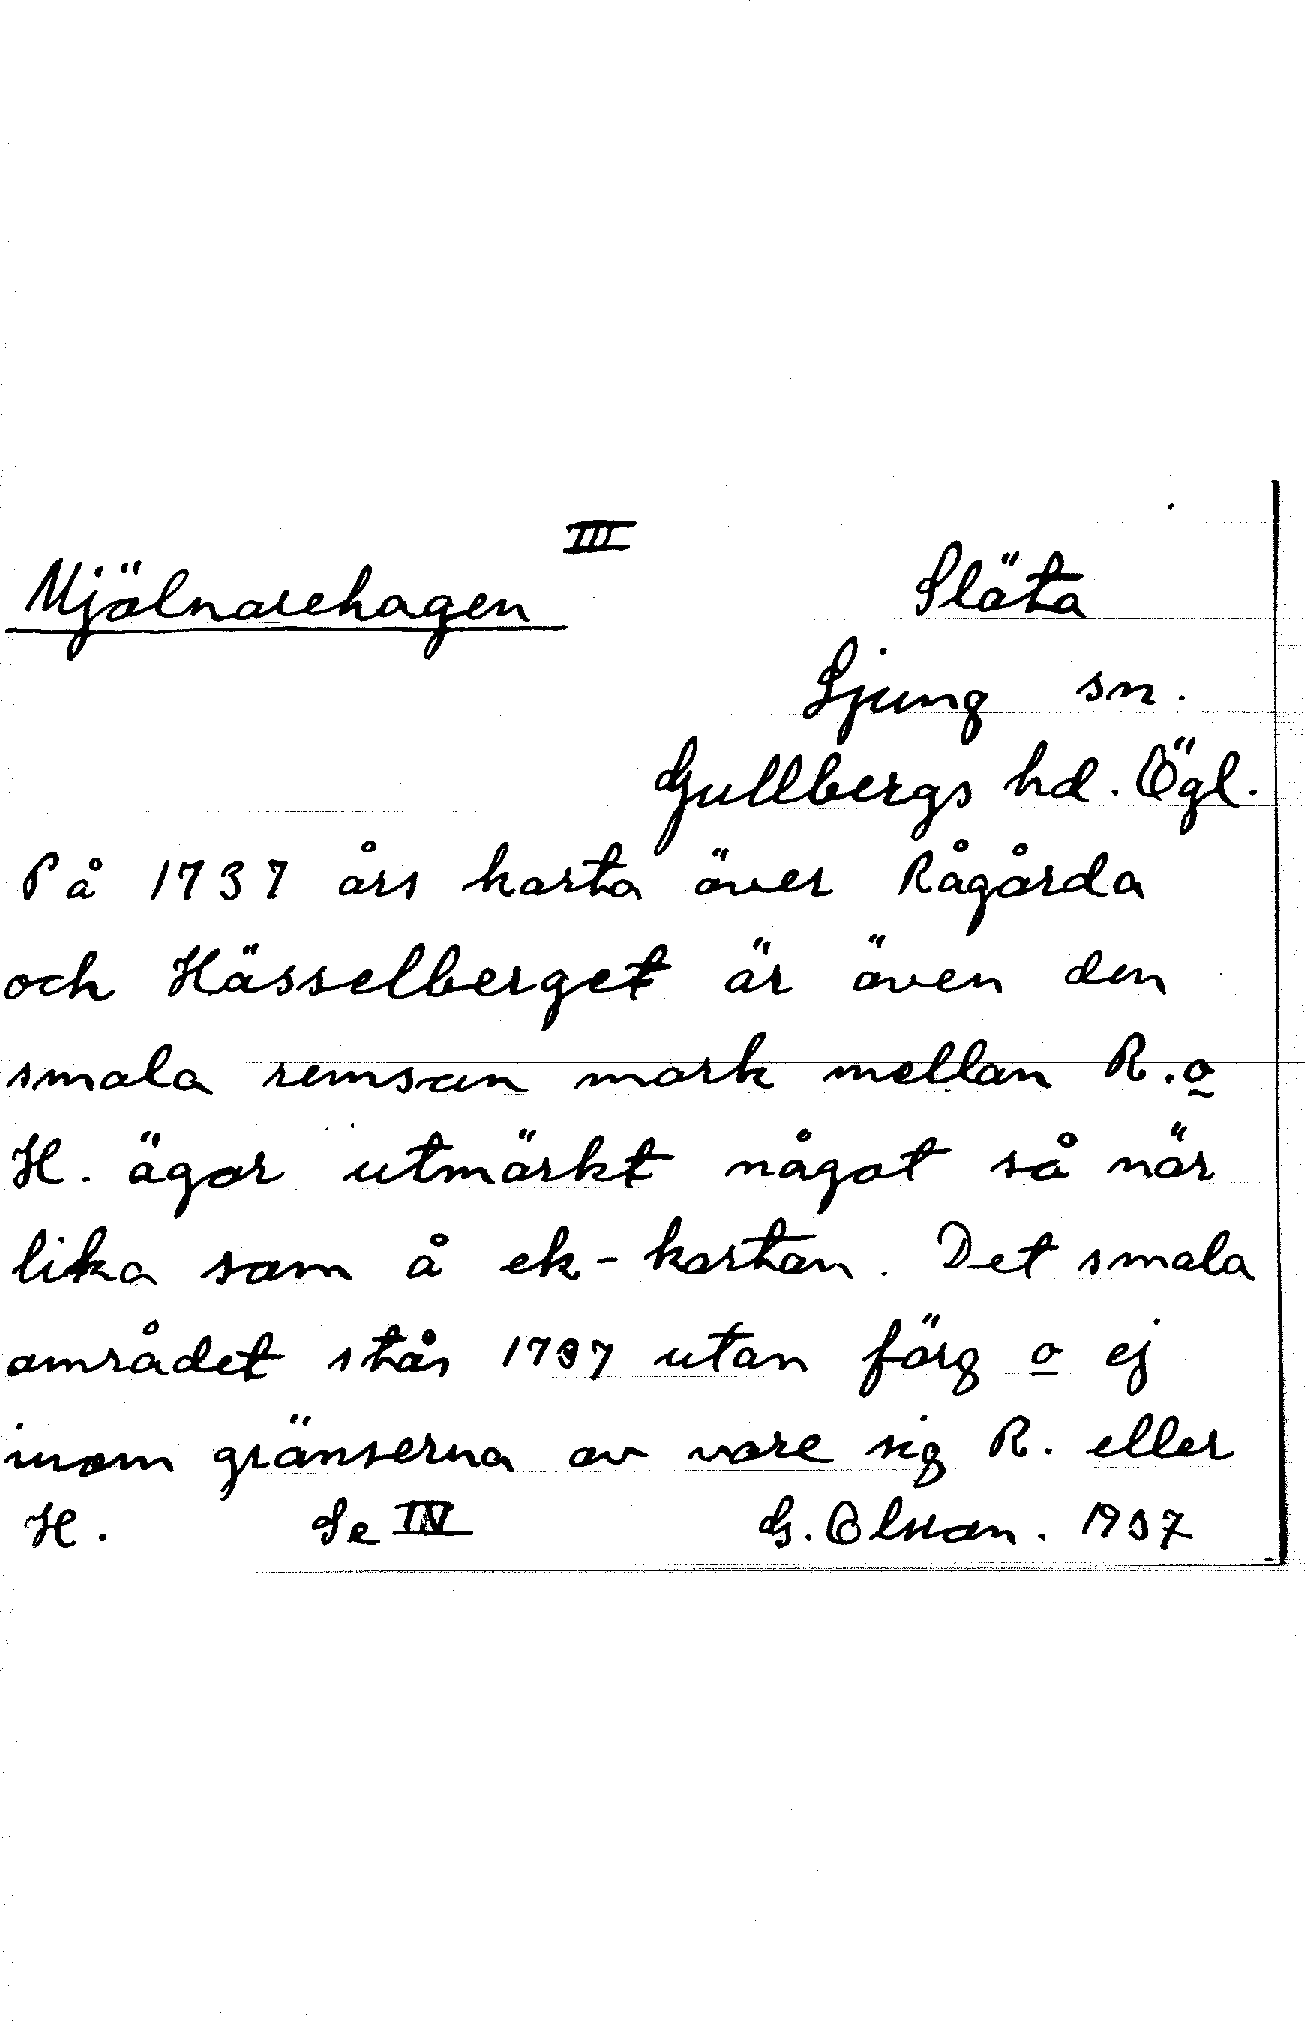 III
Mjälnarehagen
Släta
Ljung sn.
Gullbergs hd. Ögl.
På 1737 års karta över Rågårda
och Hässelberget är även den
smala remsan mark mellan R. o
H. ägor utmärkt något så när
lika som å ek-kartan. Det smala
området står 1737 utan färg o ej
inom gränserna av vare sig R. eller
H. Se IV G. Olsson. 1937